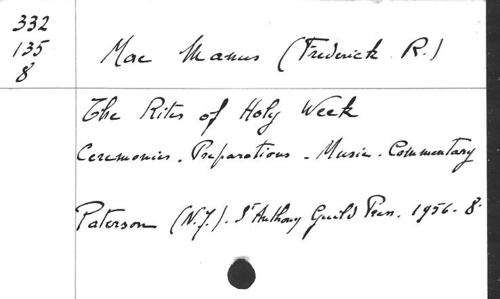 332
135
8
Mac Manus (Frederick R.)
The Rites of Holy Week
Ceremonies. Preparations - Music. Commentary
Paterson (N.J.). St Anthony Guild Press. 1956. 8°